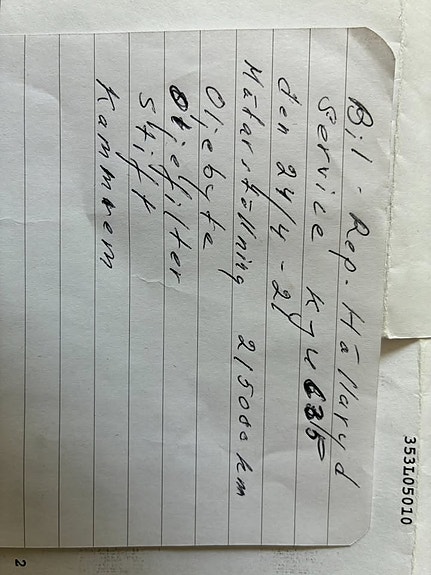 Bil-Rep. Hällaryd
Service KJU 635
den 24/4-21
Mätarställning 215080 km
Oljebyte
Oljefilter
Stift
Kammrem
353L05010
2